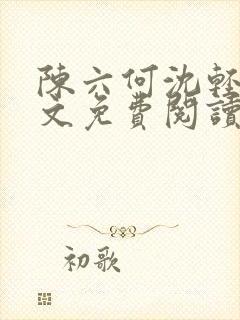 陳六何沈輕
文免費閱讀
初歌